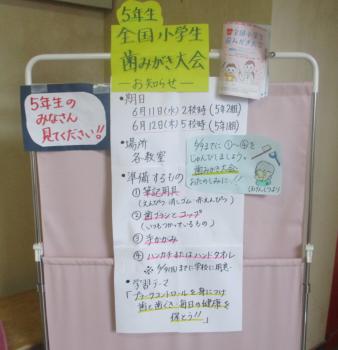 5年生
全国小学生
歯みがき大会
―お知らせ―
5年生の
みなさん
見てください!!
・期日
6月11日(水)2校時(5年2組)
6月12日(木)5校時(5年1組)
・場所
各教室
・準備するもの
① 筆記用具
(えんぴつ・消しゴム・赤えんぴつ)
② 歯ブラシとコップ
(いつもつかっているもの)
③ 手かがみ
④ ハンカチまたはハンドタオル
・学習テーマ
「プラークコントロールを身につけ
歯と歯ぐき・毎日の健康を
保とう!!」
までに①〜④を
じゅんびしましょう。
歯みがき大会
おたのしみに!!
全国小学生
歯みがき大会